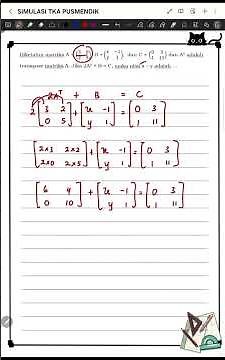 SIMULASI TKA PUSMENDIK
Diketahui matriks A B = x -1 y 1 dan C = 0 3 1 11 dan Aᵗ adalah
transpose matriks A. Jika 2Aᵗ + B = C, maka nilai x - y adalah ...
2Aᵀ + B = C
2 [3 2 0 5] + [x -1 y 1] = [0 3 1 11]
[2×3 2×2 2×0 2×5] + [x -1 y 1] = [0 3 1 11]
[6 4 0 10] + [x -1 y 1] = [0 3 1 11]